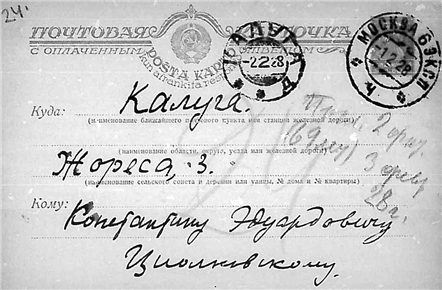 24.
ПОЧТОВАЯ КАРТОЧКА
С ОПЛАЧЕННЫМ ОТВЕТОМ
POŜTA KARTO
kun afrankita
КАЛУГА
-2.2.28
МОСКВА 6 ЭКСП.
-1.2.28
Куда: Калуга.
(наименование ближайшего почтового пункта или станции железной дороги)
(наименование области, округа, уезда или железной дороги)
Жореса, 3.
(наименование сельского совета и деревни или улицы, № дома и № квартиры)
2 фев.
3 февр
28 г.
Кому: Константину Эдуардовичу
Циолковскому.